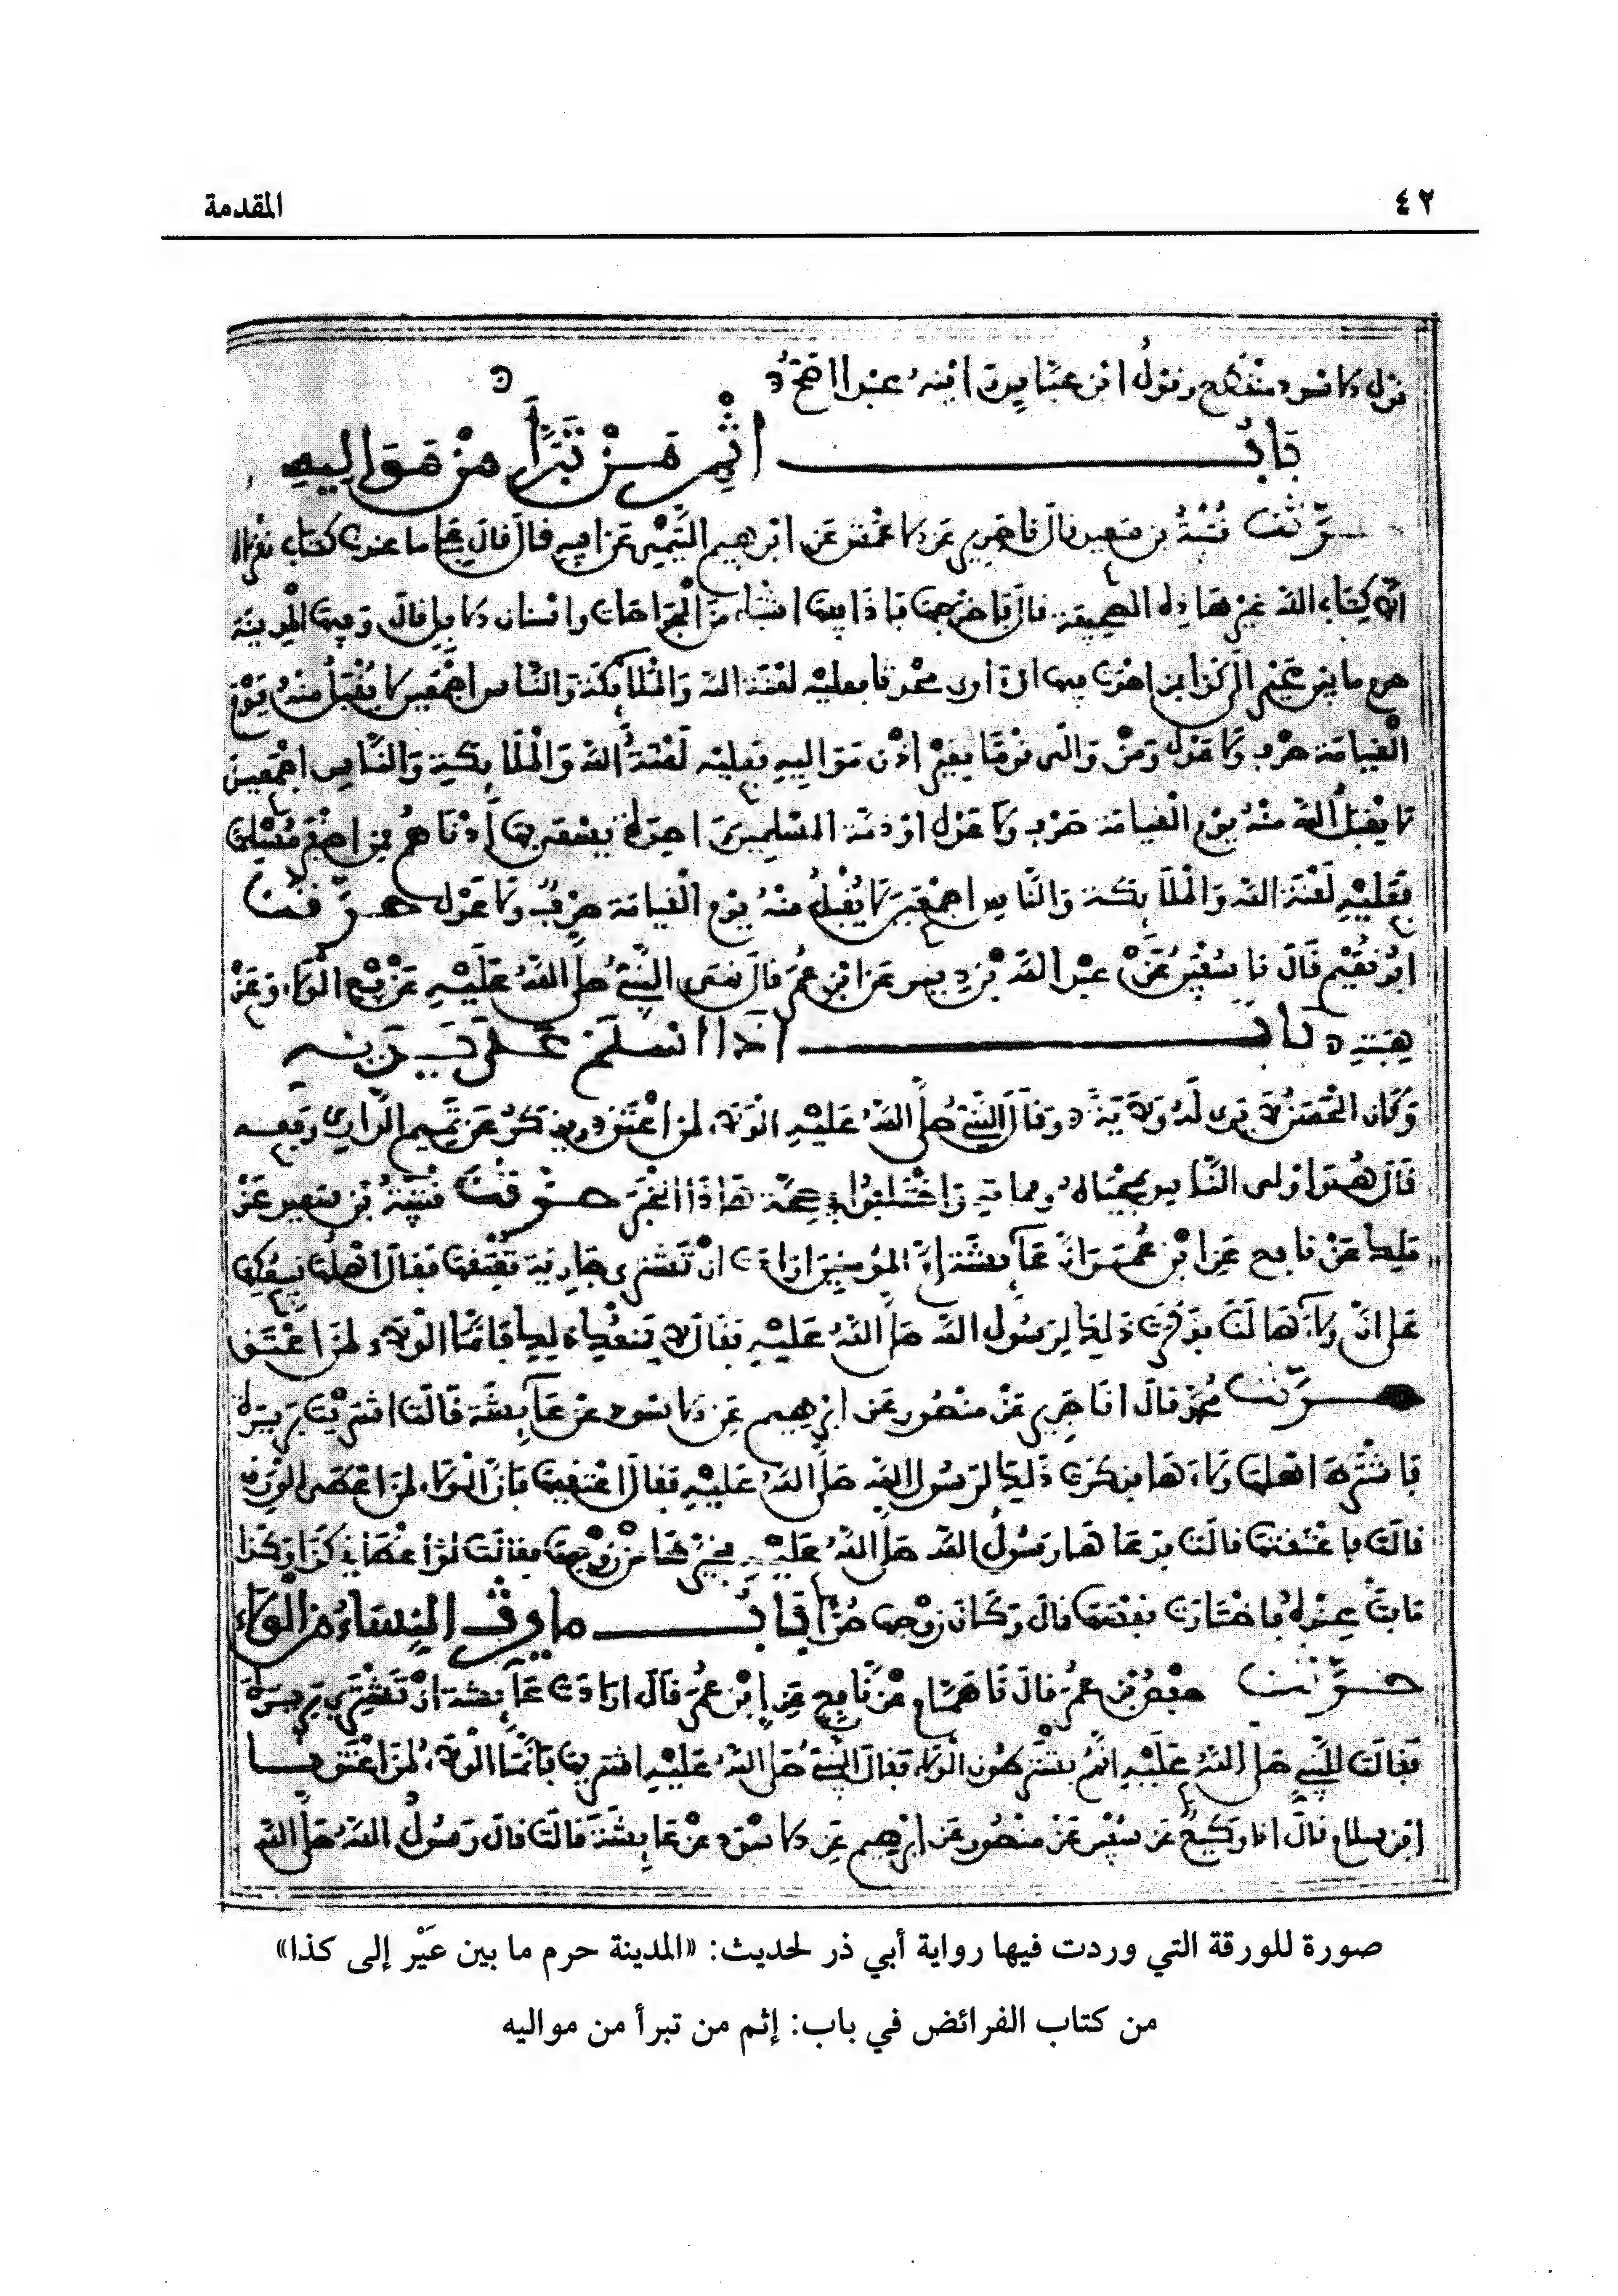 ٤٢ المقدمة
قول الاسود منقطع وقول ابن عباس رايته عبدا اصح
باب اثم من تبرأ من مواليه
حدثنا قتيبة بن سعيد قال نا جرير عن الاعمش عن ابرهيم التيمي عن ابيه قال قال علي ما عندنا كتاب نقرأه
الا كتاب الله غير هاذه الصحيفة قال فاخرجها فاذا فيها اشياء من الجراحات واسنان الابل قال وفيها المدينة
حرم ما بين عير الى كذا من احدث فيها او اوى محدثا فعليه لعنة الله والملائكة والناس اجمعين لا يقبل منه يوم
القيامة صرف ولا عدل ومن والى قوما بغير اذن مواليه فعليه لعنة الله والملائكة والناس اجمعين
لا يقبل الله منه يوم القيامة صرف ولا عدل وذمة المسلمين واحدة يسعى بها أدناهم فمن اخفر مسلما
فعليه لعنة الله والملائكة والناس اجمعين لا يقبل منه يوم القيامة صرف ولا عدل حدثنا
ابو نعيم قال نا سفين عن عبد الله بن دينر عن ابن عمر قال نهى النبي صلى الله عليه عن بيع الولاء وعن
هبته باب اذا اسلم على يديه
وكان الحسن لا يرى له ولاية وقال النبي صلى الله عليه الولاء لمن اعتق ويذكر عن تميم الداري رفعه
قال هو اولى الناس بمحياه ومماته واختلفوا في صحة هاذا الخبر حدثنا قتيبة بن سعيد عن
ملك عن نافع عن ابن عمر ان عائشة ام المومنين ارادت ان تشتري جارية تعتقها فقال اهلها نبيعكها
على ان ولاءها لنا فذكرت ذلك لرسول الله صلى الله عليه فقال لا يمنعك ذلك فانما الولاء لمن اعتق
حدثنا محمد قال انا جرير عن منصور عن ابرهيم عن الاسود عن عائشة قالت اشتريت بريرة
فاشترط اهلها ولاءها فذكرت ذلك لرسول الله صلى الله عليه فقال اعتقيها فان الولاء لمن اعطى الورق
قالت فاعتقتها قالت فدعاها رسول الله صلى الله عليه فخيرها من زوجها فقالت لو اعطاني كذا وكذا
مابت عنده فاختارت نفسها قال وكان زوجها حرا باب ما يرث النساء من الولاء
حدثنا حفص بن عمر قال نا همام عن نافع عن ابن عمر قال ارادت عائشة ان تشتري بريرة
فقالت للنبي صلى الله عليه انهم يشترطون الولاء فقال النبي صلى الله عليه اشتريها فانما الولاء لمن اعتق نا
ابن سلام قال انا وكيع عن سفين عن منصور عن ابرهيم عن الاسود عن عائشة قالت قال رسول الله صلى الله
صورة للورقة التي وردت فيها رواية أبي ذر لحديث: «المدينة حرم ما بين عَيْر إلى كذا»
من كتاب الفرائض في باب: إثم من تبرأ من مواليه